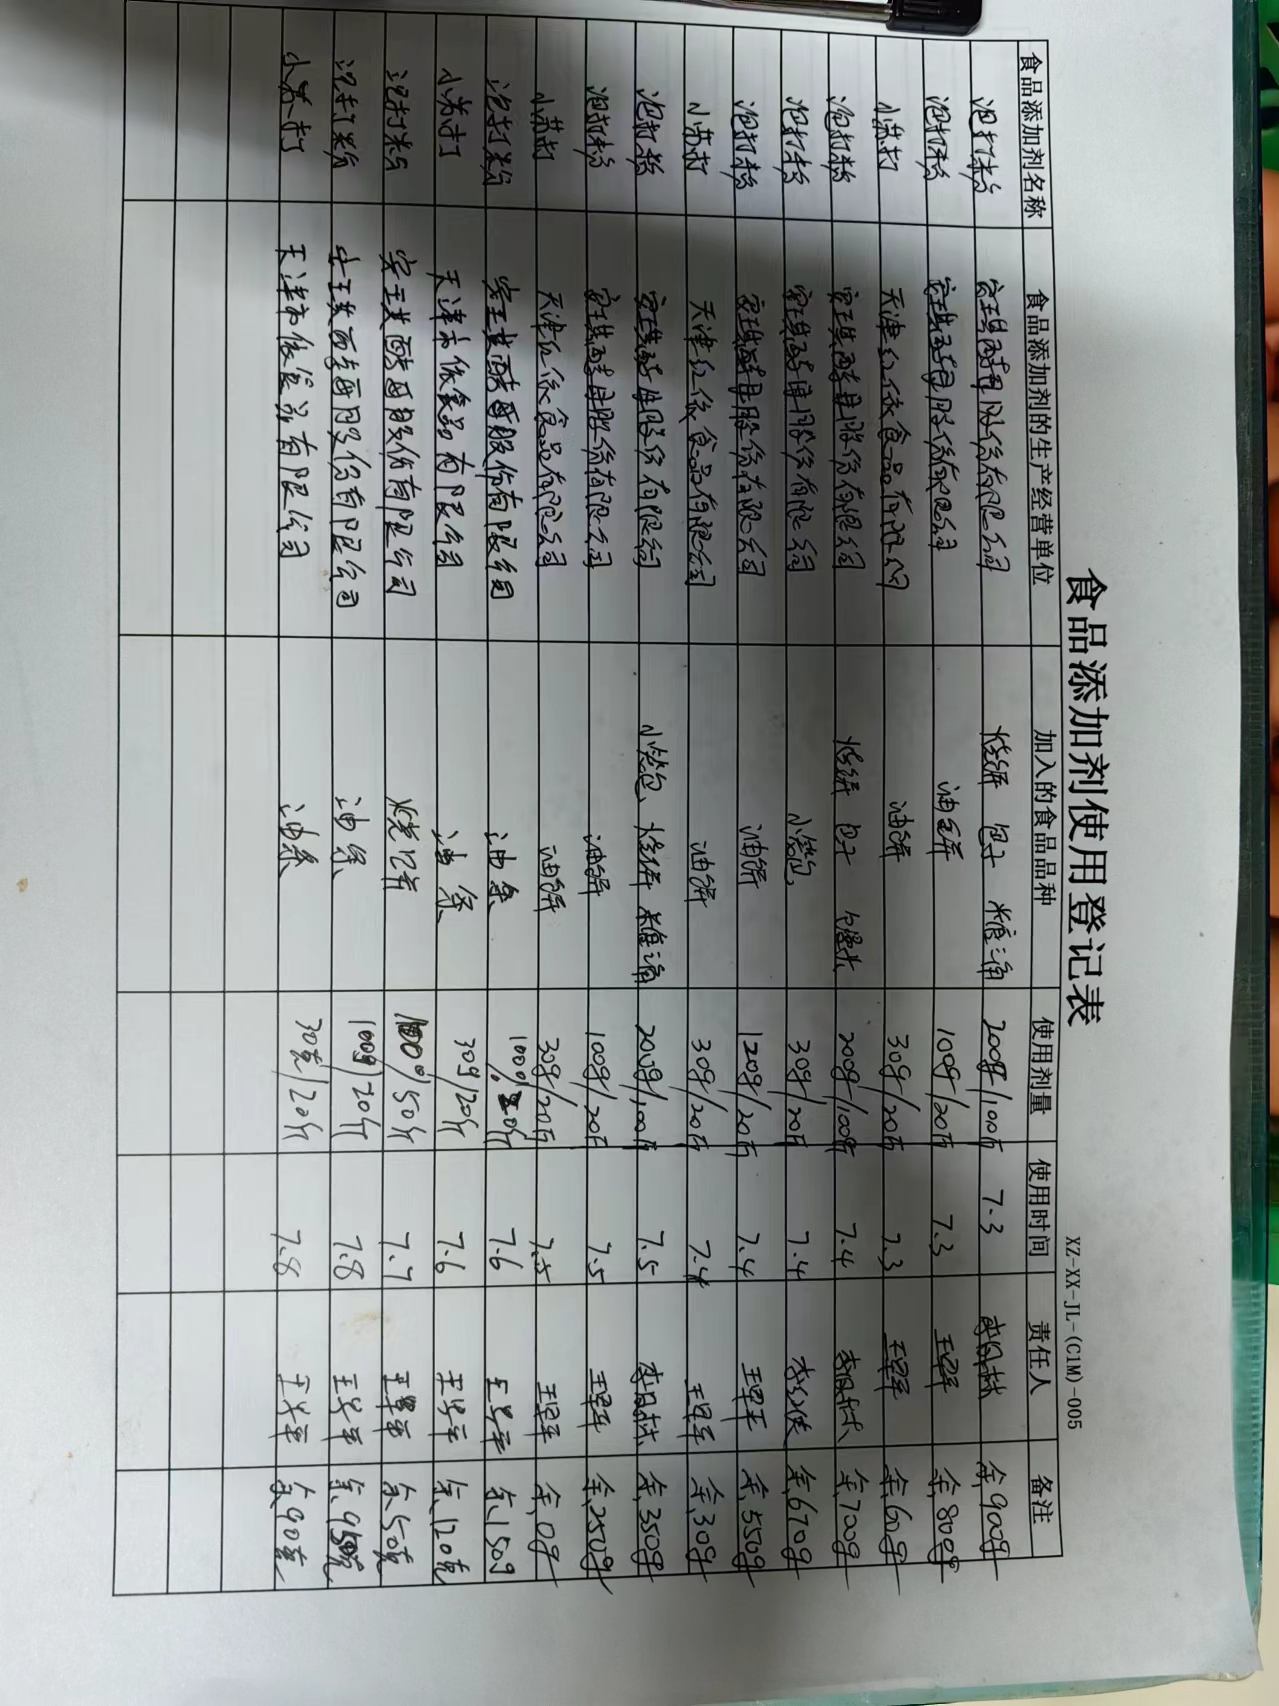 食品添加剂使用登记表
XZ-XX-JL-(C1M)-005
食品添加剂名称 食品添加剂的生产经营单位 加入的食品品种 使用剂量 使用时间 责任人 备注
泡打粉 安琪酵母股份有限公司 烧饼 包子 糖三角 200g/100斤 7.3 余900g
泡打粉 安琪酵母股份有限公司 油饼 100g/20斤 7.3 余800g
小苏打 天津红依食品有限公司 油饼 30g/20斤 7.3 余60g
泡打粉 安琪酵母股份有限公司 烧饼 包子 馒头 200g/100斤 7.4 余700g
泡打粉 安琪酵母股份有限公司 小笼包 30g/20斤 7.4 余670g
泡打粉 安琪酵母股份有限公司 油饼 120g/20斤 7.4 余550g
小苏打 天津红依食品有限公司 油饼 30g/20斤 7.4 余30g
泡打粉 安琪酵母股份有限公司 小笼包、烧饼 糖三角 200g/100斤 7.5 余350g
泡打粉 安琪酵母股份有限公司 油饼 100g/20斤 7.5 余250g
小苏打 天津红依食品有限公司 油饼 30g/20斤 7.5 余0g
泡打粉 安琪酵母股份有限公司 油条 100g/20斤 7.6 余150g
小苏打 天津市依食品有限公司 油条 30g/20斤 7.6 余120克
泡打粉 安琪酵母股份有限公司 烧饼 100g/50斤 7.7 余50克
泡打粉 安琪酵母股份有限公司 油条 100g/20斤 7.8 余950克
小苏打 天津市依食品有限公司 油条 30克/20斤 7.8 余90克